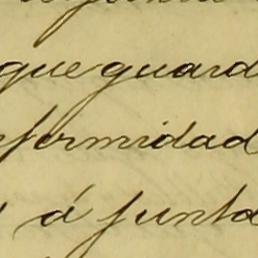 que guard
nfermidad
á junta